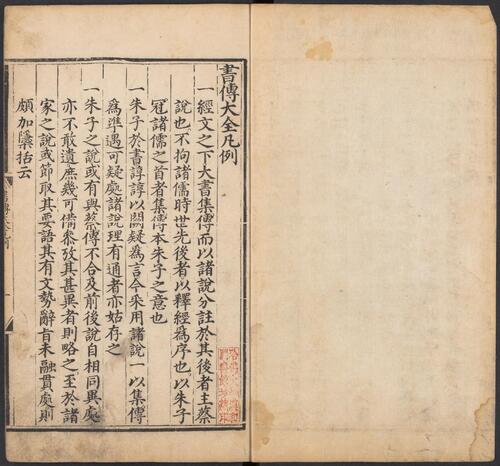 書傳大全凡例
一經文之下大書集傳而以諸說分註於其後者主蔡
說也不拘諸儒時世先後者以釋經爲序也以朱子
冠諸儒之首者集傳本朱子之意也
一朱子於書諄諄以闕疑爲言今采用諸說一以集傳
爲準遇可疑處諸說理有通者亦姑存之
一朱子之說或有與蔡傳不合及前後說自相同異處
亦不敢遺庶幾可備參攷其甚異者則略之至於諸
家之說或節取其要語其有文勢辭旨未融貫處則
頗加隱括云